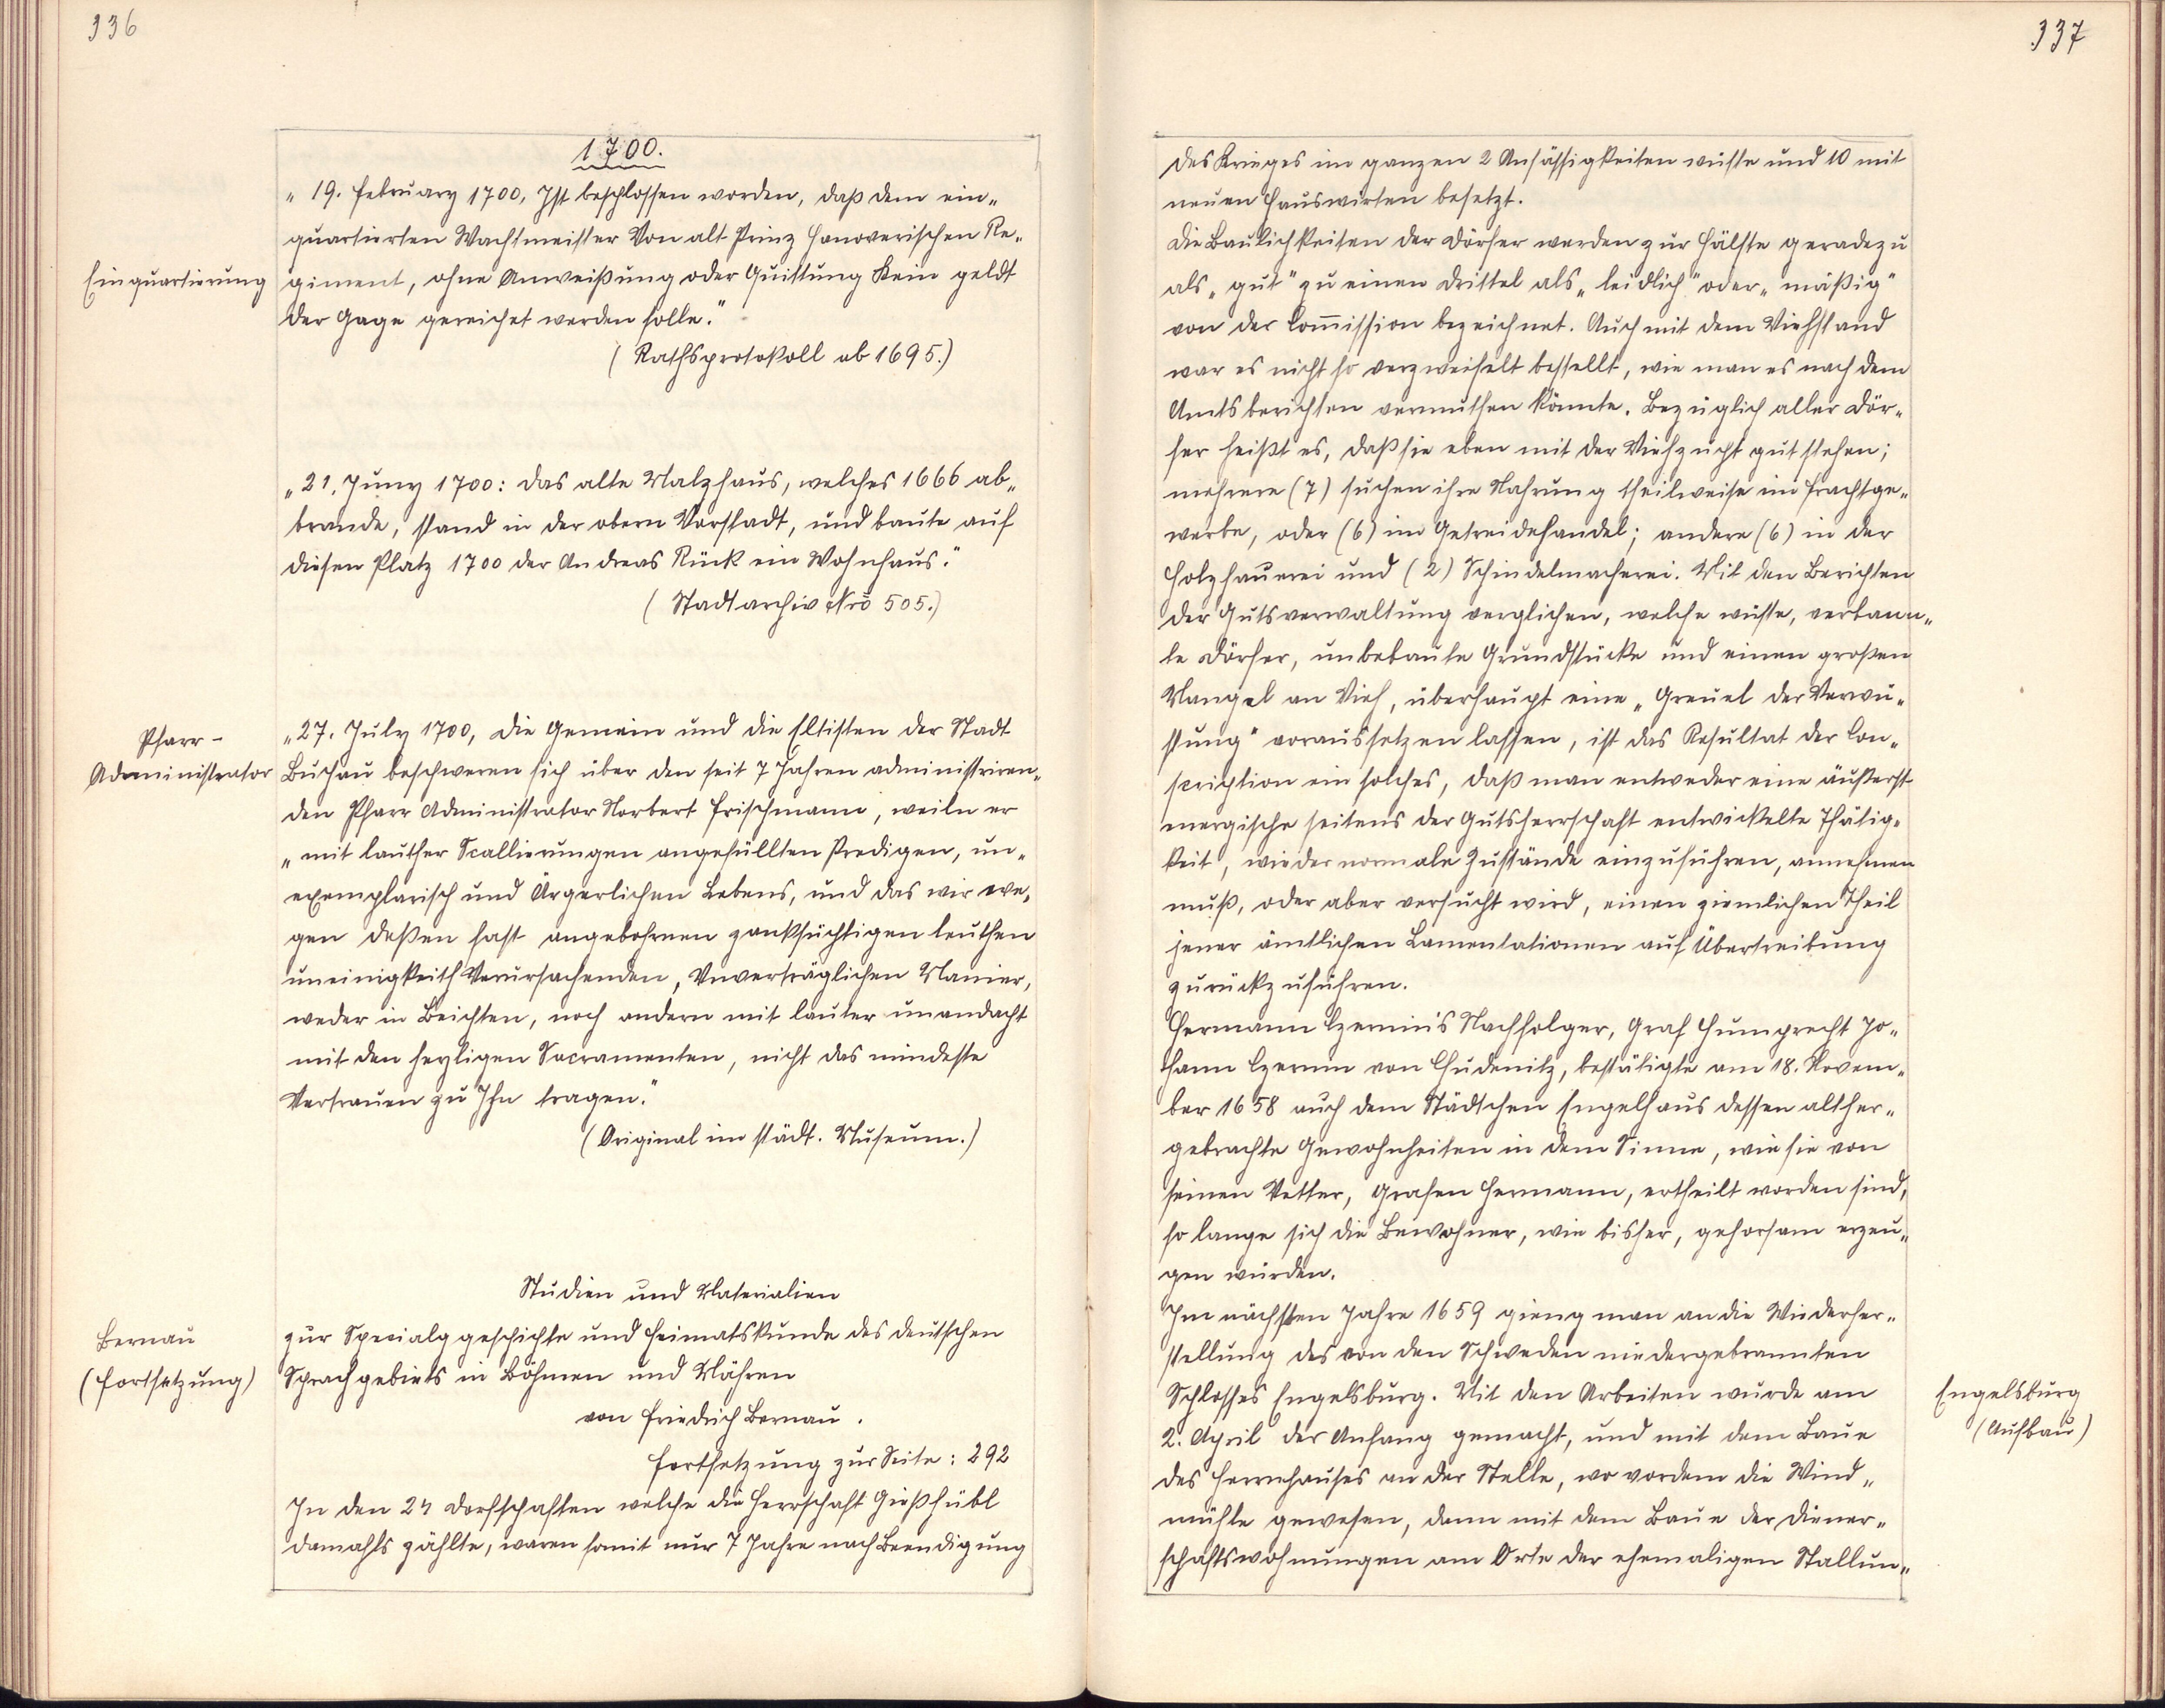 336
1700.
„19. February 1700, Ist beschlossen worden, daß dem ein„
quartierten Wachtmeister Von alt Prinz Hanoverischen Re„
Einquartierung
giment, ohne Anweißung oder Quittung Kein geldt
der Gage gereichet werden solle."
(Rathsprotokoll ab 1695.)
„21. Juny 1700: das alte Malzhaus, welches 1666 ab„
brande, stand in der obern Vorstadt, und baute auf
diesen Platz 1700 der Andreas Rück ein Wohnhaus."
(Stadtarchiv Nro 505.)
Pfarr-
Administrator
„27. July 1700, die Gemein und die Eltisten der Stadt
Buchau beschweren sich über den seit 7 Jahren administriren„
den Pfarr Administrator Norbert Frischmann, weiln er
„mit lauther Scallierungen angefüllten Predigen, un„
exemplarisch und Ärgerlichen Lebens, und das wir we„
gen deßen fast angebohrnen zanksüchtigen leuthen
uneinigkeith Verursachenden, Unverträglichen Manier,
weder in Beichten, noch andern mit lauter unandacht
mit den heyligen Sacramenten, nicht das mindeste
Vertrauen zu Ihn tragen."
(Original im städt. Museum.)
Studien und Materialien
Bernau
(Fortsetzung)
zur Specialgeschichte und Heimatskunde des deutschen
Sprachgebiets in Böhmen und Mähren
von Friedrich Bernau.
Fortsetzung zur Seite: 292
In den 24 Dorfschaften welche die Herrschaft Gießhübl
damahls zählte, waren somit nur 7 Jahre nach Beendigung
337
des Krieges im ganzen 2 Ansässigkeiten wüste und 10 mit
neuen Hauswirten besetzt.
Die Baulichkeiten der Dörfer werden zur Hälfte geradezu
als „gut" zu einen drittel als „leidlich" oder „mäßig"
von der Com̄ission bezeichnet. Auch mit dem Viehstand
war es nicht so verzweifelt bestellt, wie man es nach dem
Amtsberichten vermuthen könnte. Bezüglich aller Dör„
fer heißt es, daß sie eben mit der Viehzucht gut stehen;
mehrere (7) suchen ihre Nahrung theilweise im Frachtge„
werbe, oder (6) im Getreidehandel; andere (6) in der
Holzhauerei und (2) Schindelmacherei. Mit den Berichten
der Gutsverwaltung verglichen, welche wüste, verbrann„
te Dörfer, unbebaute Grundstücke und einen großen
Mangel an Vieh, überhaupt eine „Greuel der Verwü„
stung" voraussetzen lassen, ist das Resultat der Con„
scription ein solches, daß man entweder eine äußerst
energische seitens der Gutsherrschaft entwickelte Thätig„
keit, wieder normale Zustände einzuführen, annehmen
muß, oder aber versucht wird, einen ziemlichen Theil
jener ämtlichen Lamentationen auf Übertreibung
zurückzuführen.
Hermann Czernin's Nachfolger, Graf Humprecht Jo„
hann Czernin von Chudenitz, bestätigte am 18. Novem„
ber 1658 auch dem Städtchen Engelhaus dessen althen„
gebrachte Gewohnheiten in dem Sinne, wie sie von
seinen Vetter, Grafen Hermann, ertheilt worden sind,
so lange sich die Bewohner, wie bisher, gehorsam erzeu„
gen würden.
Im nächsten Jahre 1659 gieng man an die Wiederher„
stellung des von den Schweden niedergebrannten
Schlosses Engelsburg. Mit den Arbeiten wurde am
Engelsburg
(Aufbau)
2. April der Anfang gemacht, und mit dem Baue
des Herrnhauses an der Stelle, wo vordem die Wind„
mühle gewesen, dann mit dem Baue der Diener„
schaftswohnungen am Orte der ehemaligen Stallun„